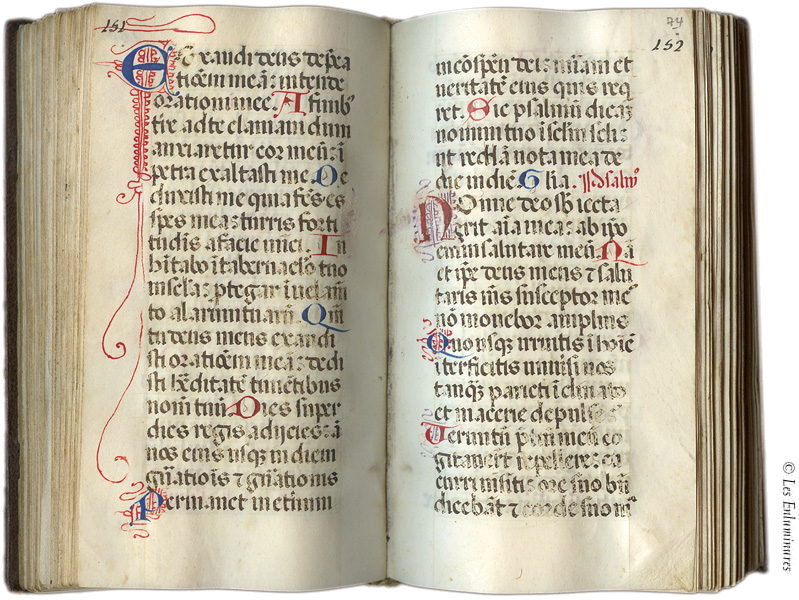 151
Exaudi deus dep̄ca
tiōem meā: intende
orationi mee. A finibꝰ
tre ad te clamaui dum
anxiaretur cor meū: ī
petra exaltasti me. De
duxisti me quia fc̄s es
spes mea: turris forti
tudīs a facie inimici. In
hītabo ī tabernaclo tuo
in sc̄la: ptegar ī uelam̄
to alarum tuarū. Qm̄
tu deus meus exaudi
sti oratiōem meā: dedi
sti h̄editatē timētibus
nom̄ tuū. Dies super
dies regis adijcies: ā
nos eius usq̄ in diem
gn̄atiōīs ⁊ gn̄ationis
Permanet in eternum
74
152
in cōspc̄u dei: mīam et
ueritatē eius quis req̄
ret. Sic psalmū dicaꝫ
nomini tuo ī sc̄lm sc̄li:
ut reddā uota mea de
die in diē. Gl̄ia. Psalmꝰ
Nonne deo sb̄iecta
erit aīa mea: ab ipo
enim salutare meū. Nā
et ip̄e deus meus ⁊ salu
taris m̄s susceptor meꝰ
nō mouebor amplius
Quousq̄ irruitis ī hoīeꝫ
īterficitis uniūsi uos
tanq̄ȝ parieti īclinato
et macerie depulse
Uerūtn̄ p̄tiū meū co
gitauert̄ repellere: cu
curri in siti: ore suo bn̄
dicebāt ⁊ corde suo m̄
© Les Enluminures